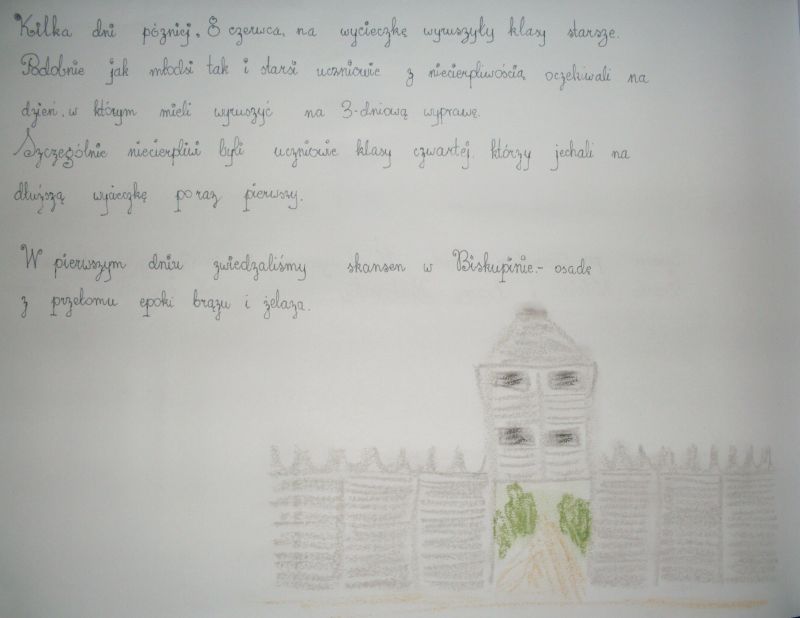 Kilka dni później, 8 czerwca, na wycieczkę wyruszyły klasy starsze.
Podobnie jak młodsi tak i starsi uczniowie z niecierpliwością oczekiwali na
dzień, w którym mieli wyruszyć na 3-dniową wyprawę.
Szczególnie niecierpliwi byli uczniowie klasy czwartej, którzy jechali na
dłuższą wycieczkę po raz pierwszy.
W pierwszym dniu zwiedzaliśmy skansen w Biskupinie - osadę
z przełomu epoki brązu i żelaza.